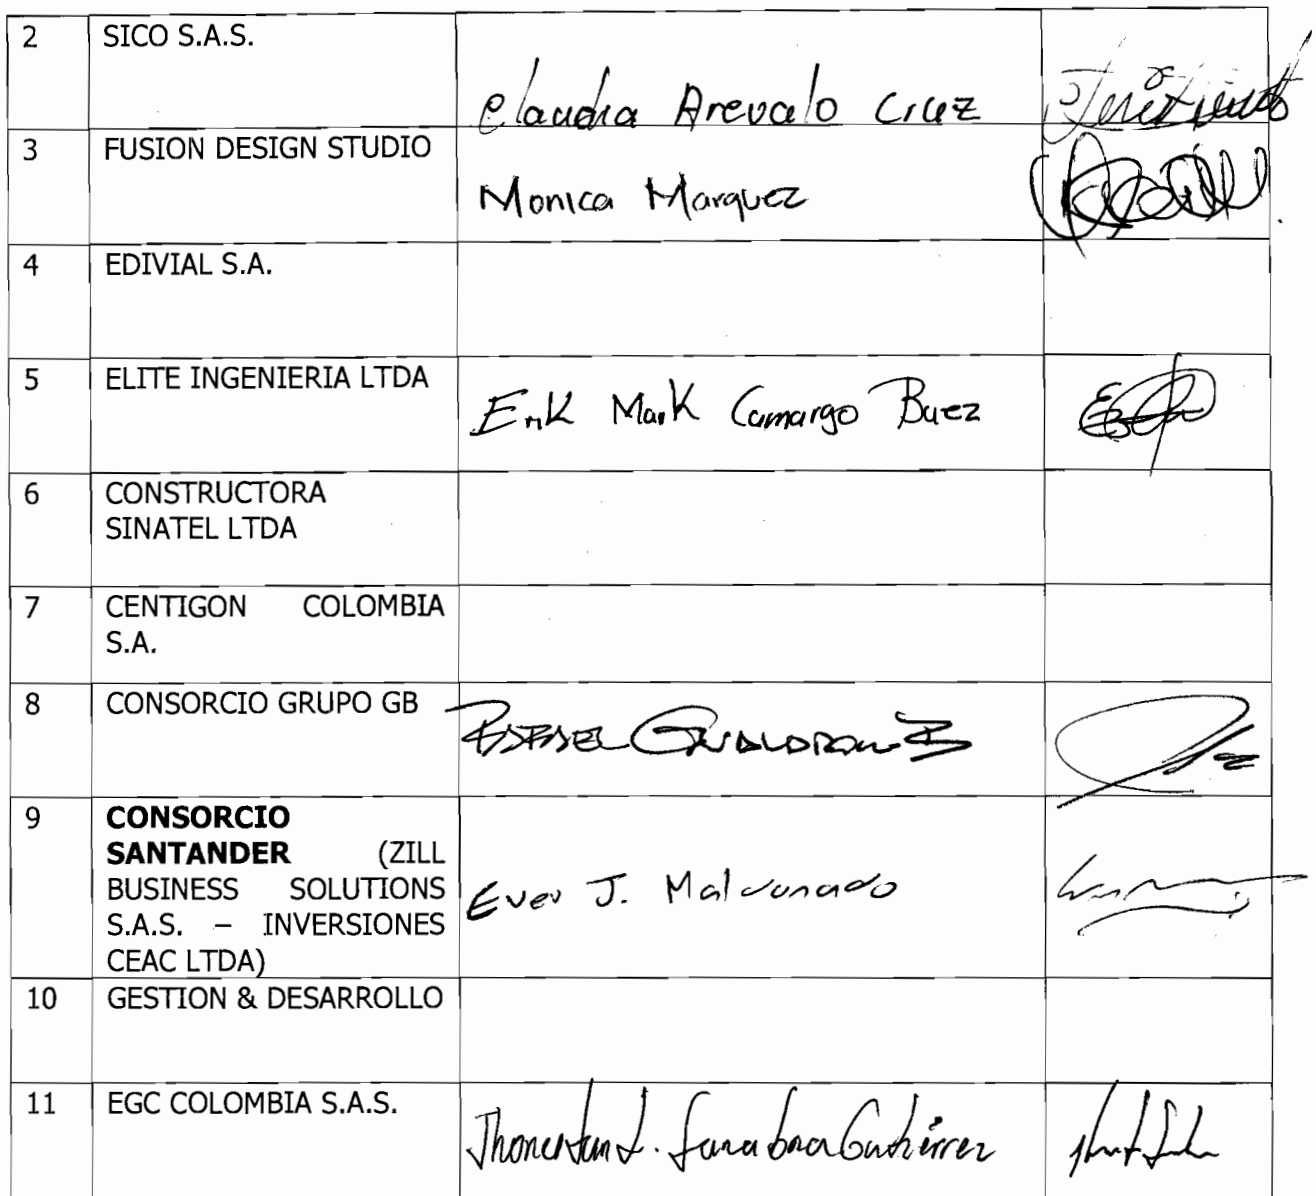 2 SICO S.A.S. Claudia Arevalo Cruz
3 FUSION DESIGN STUDIO Monica Marquez
4 EDIVIAL S.A.
5 ELITE INGENIERIA LTDA Erik Mark Camargo Baez
6 CONSTRUCTORA
SINATEL LTDA
7 CENTIGON COLOMBIA
S.A.
8 CONSORCIO GRUPO GB RAFAEL
9 CONSORCIO
SANTANDER (ZILL
BUSINESS SOLUTIONS Ever J. Maldonado
S.A.S. – INVERSIONES
CEAC LTDA)
10 GESTION & DESARROLLO
11 EGC COLOMBIA S.A.S. Gutiérrez